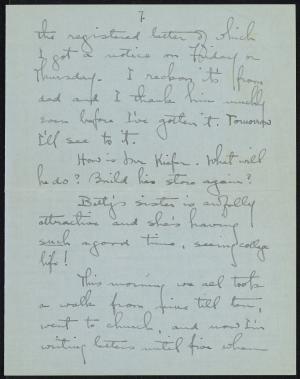 7.
the registered letter of which
I got a notice on Friday or
Thursday. I reckon it's from
dad and I thank him muchly
even before I've gotten it. Tomorrow
I'll see to it.
How is Mr Kiefer. What will
he do? Build his store again?
Betty's sister is awfully
attractive and she's having
such a good time, seeing college
life!
This morning we all took
a walk from nine till ten,
went to church, and now I'm
writing letters until five when